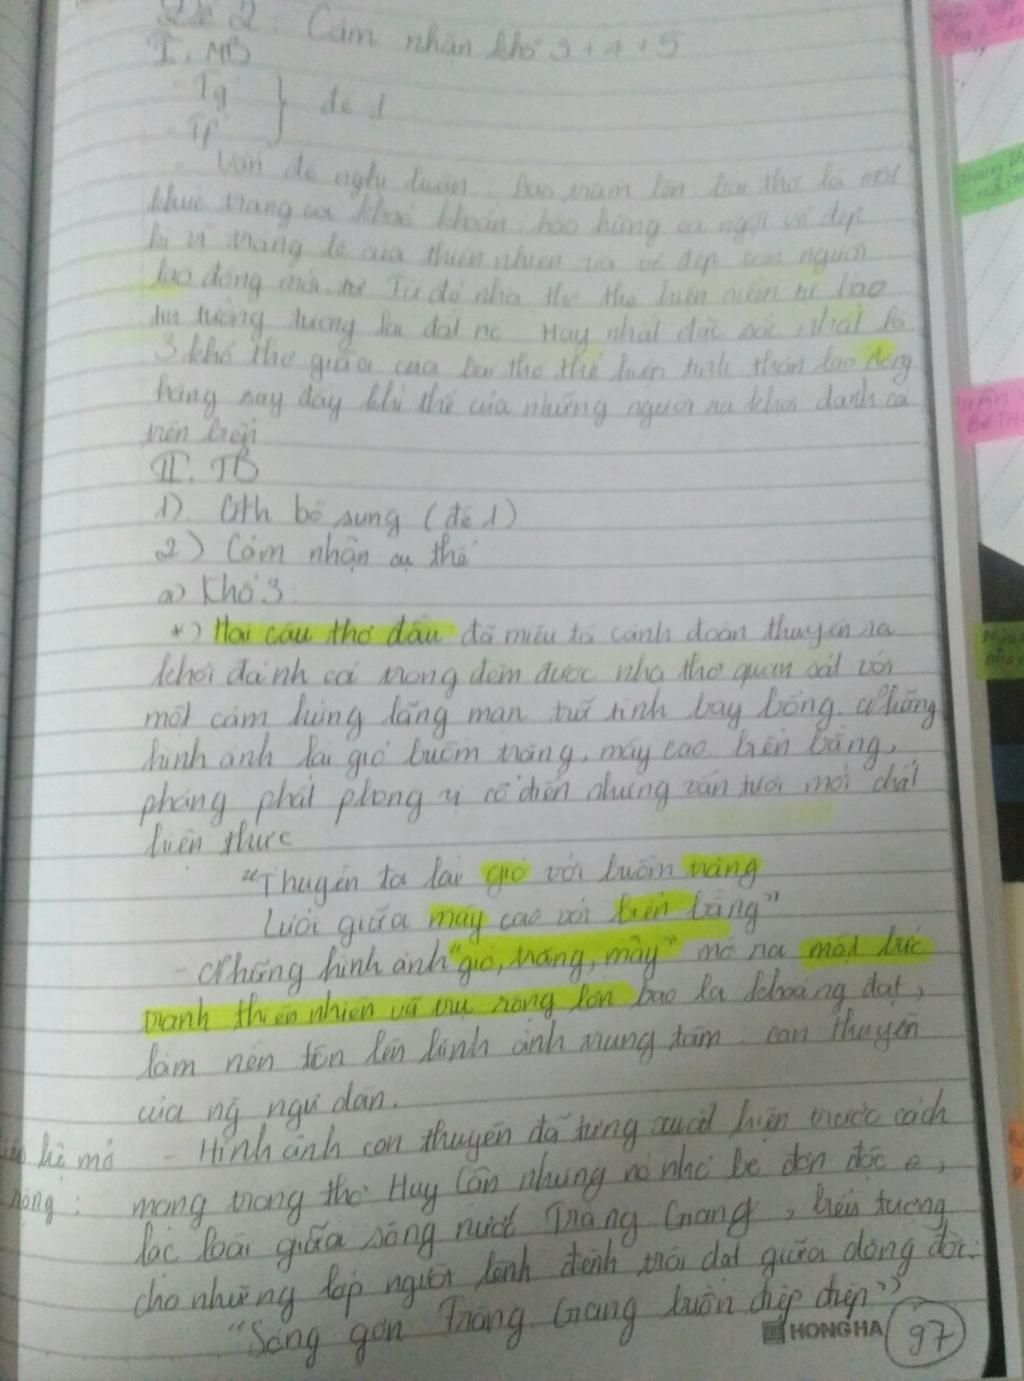 Đề 2: Cảm nhận khổ 3+4+5
I, MB
- Tg
- TP } đề 1
- Vấn đề nghị luận: bao trùm lên bài thơ là một
khúc tráng ca khỏe khoắn, hào hứng ca ngợi vẻ đẹp
kì vĩ tráng lệ của thiên nhiên và vẻ đẹp con người
lao động mới. Từ đó nhà thơ thể hiện niềm tự hào
tin tưởng tương lai đất nc. Hay nhất đặc sắc nhất là
3 khổ thơ giữa của bài thơ thể hiện tinh thần lao động
hăng say đầy khí thế của những người ra khơi đánh cá
trên biển
II. TB
1) Gth bổ sung (đề 1)
2) Cảm nhận cụ thể
a) Khổ 3:
*) Hai câu thơ đầu đã miêu tả cảnh đoàn thuyền ra
khơi đánh cá trong đêm được nhà thơ quan sát với
một cảm hứng lãng mạn trữ tình bay bổng. Những
hình ảnh lái gió buồm trăng, mây cao, biển bằng,
phảng phất phong vị cổ điển nhưng vẫn tươi mới chất
hiện thực
"Thuyền ta lái gió với buồm trăng
Lưới giữa mây cao với biển bằng"
- Những hình ảnh "gió, trăng, mây" mở ra một bức
tranh thiên nhiên vũ trụ rộng lớn bao la khoáng đạt,
làm nền tôn lên hình ảnh trung tâm: con thuyền
của ng ngư dân.
hệ mở - Hình ảnh con thuyền đã từng xuất hiện trước cách
rộng: mạng trong thơ Huy Cận nhưng nó nhỏ bé đơn độc,
lạc loài giữa sông nước Tràng Giang, biểu tượng
cho những lớp người lênh đênh trôi dạt giữa dòng đời:
"Sóng gợn Tràng Giang buồn điệp điệp"
HONG HA 97